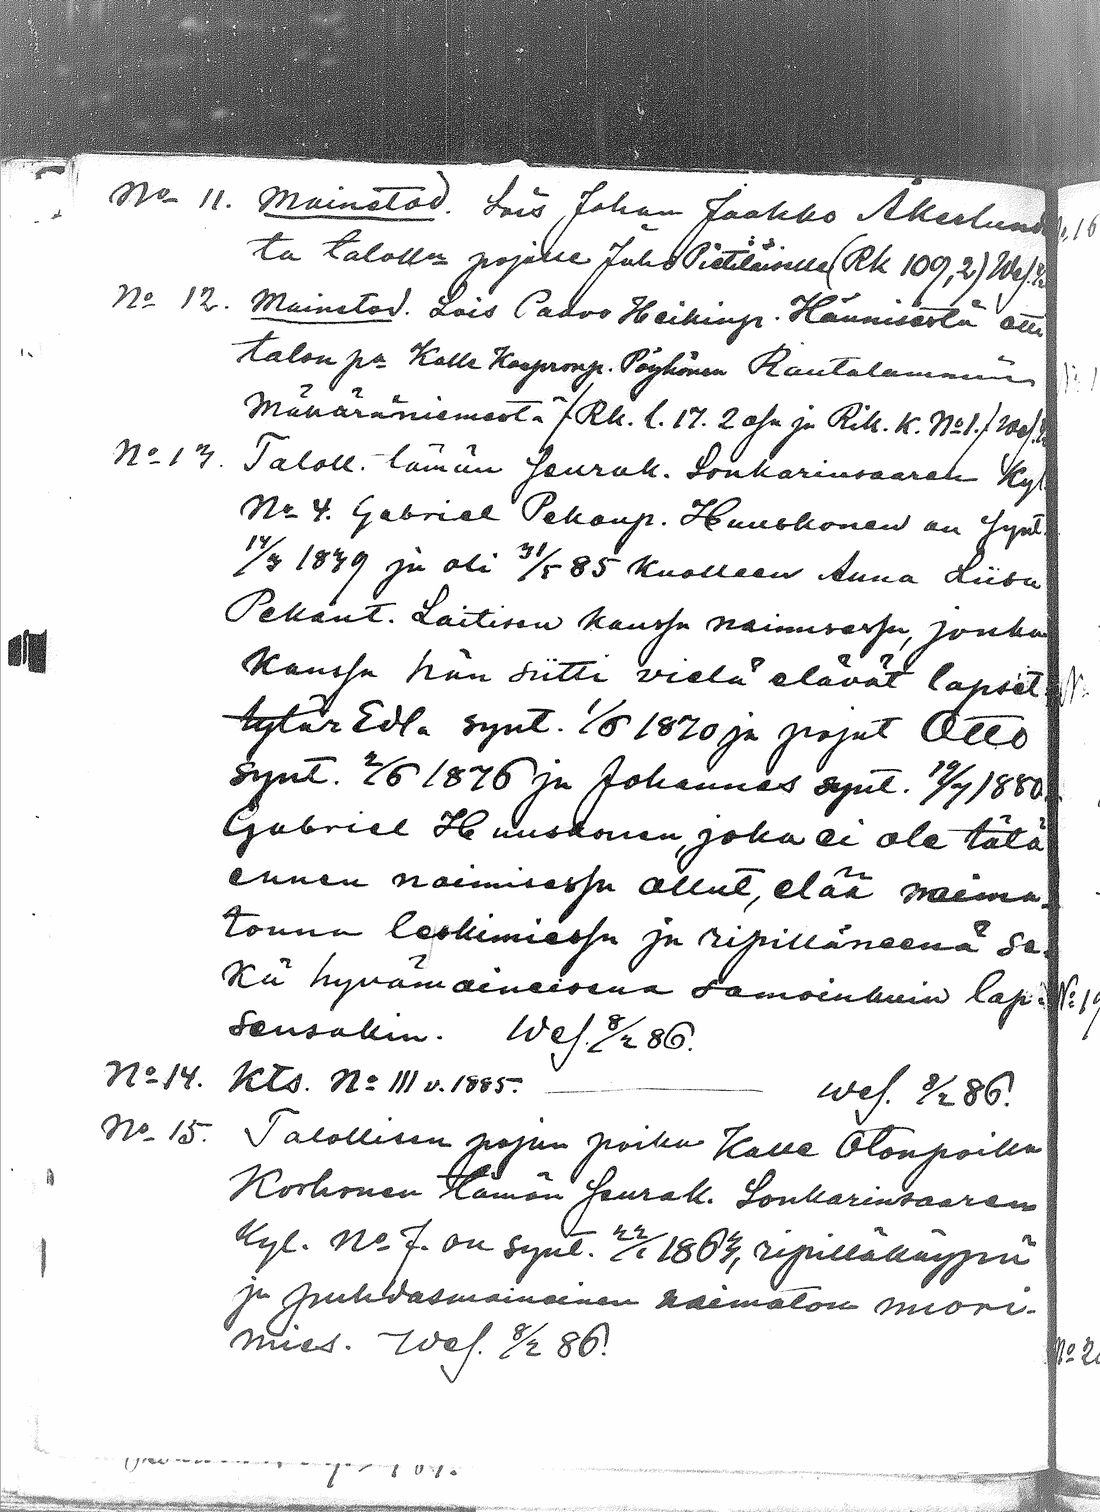 No 11. Mainetod. Lois Johan Jaakko Åkerlund
ta talolln pojalle Juho Pietiläiselle (Rk 109,2) Wes.
No 12. Mainetod. Lois Paavo Heikinp. Hännisestä
talon pn Kalle Kaspronp. Pöyhönen Rautalammin
Mäkäräniemestä (Rk. l. 17. 2 osa ja Rik. K. No 1.) Wes.
No 13. Taloll. tämän seurak. Sonkarinsaaren Kyl.
No 4. Gabriel Pekanp. Huuskonen on synt.
14/3 1839 ja oli 31/5 85 kuolleen Anna Liisa
Pekant. Laitisen kanssa naimisessa, jonka
kanssa hän siitti vielä elävät lapset
tytär Edla synt. 1/6 1870 ja pojat Otto
synt. 2/6 1876 ja Johannes synt. 19/7 1880.
Gabriel Huuskonen, joka ei ole tätä
ennen naimisessa ollut, elää naima-
tonna leskimiessä ja ripilläneenä se-
kä hyvämaineisena samoinkuin lap-
sensakin. Wes. 8/2 86.
No 14. Kts. No III v. 1885. Wes. 8/2 86.
No 15. Talollisen pojan poika Kalle Otonpoika
Korhonen tämän seurak. Sonkarinsaaren
Kyl. No 7. on synt. 22/1 1863, ripilläkäypä
ja puhdasmainainen naimaton nuori-
mies. Wes. 8/2 86.